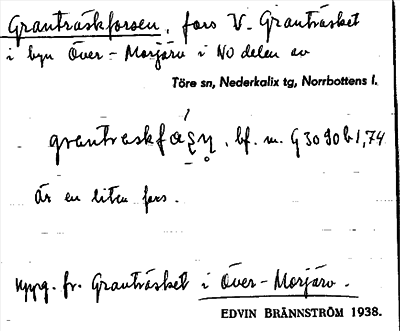 Granträskforsen, fors V. Granträsket
i byn Över-Morjärv i NO delen av
Töre sn, Nederkalix tg, Norrbottens l.
grantraskfáʂn̥, bf. m. G 3090 b 1,74
Är en liten fors.
uppg. fr. Granträsket i Över-Morjärv.
EDVIN BRÄNNSTRÖM 1938.